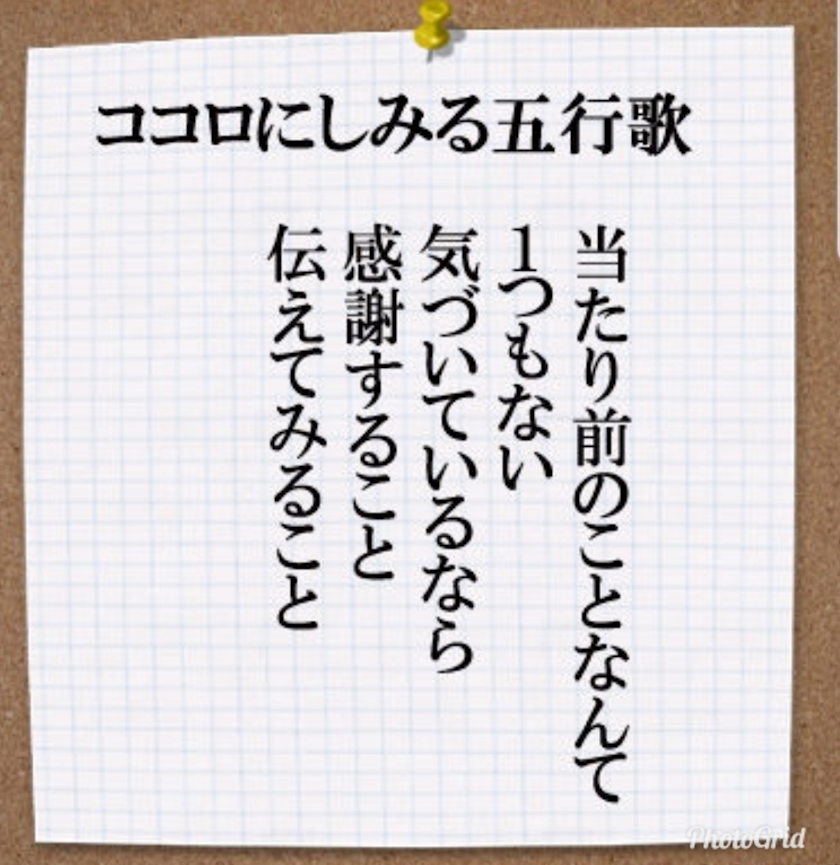 ココロにしみる五行歌
当たり前のことなんて
1つもない
気づいているなら
感謝すること
伝えてみること
PhotoGrid